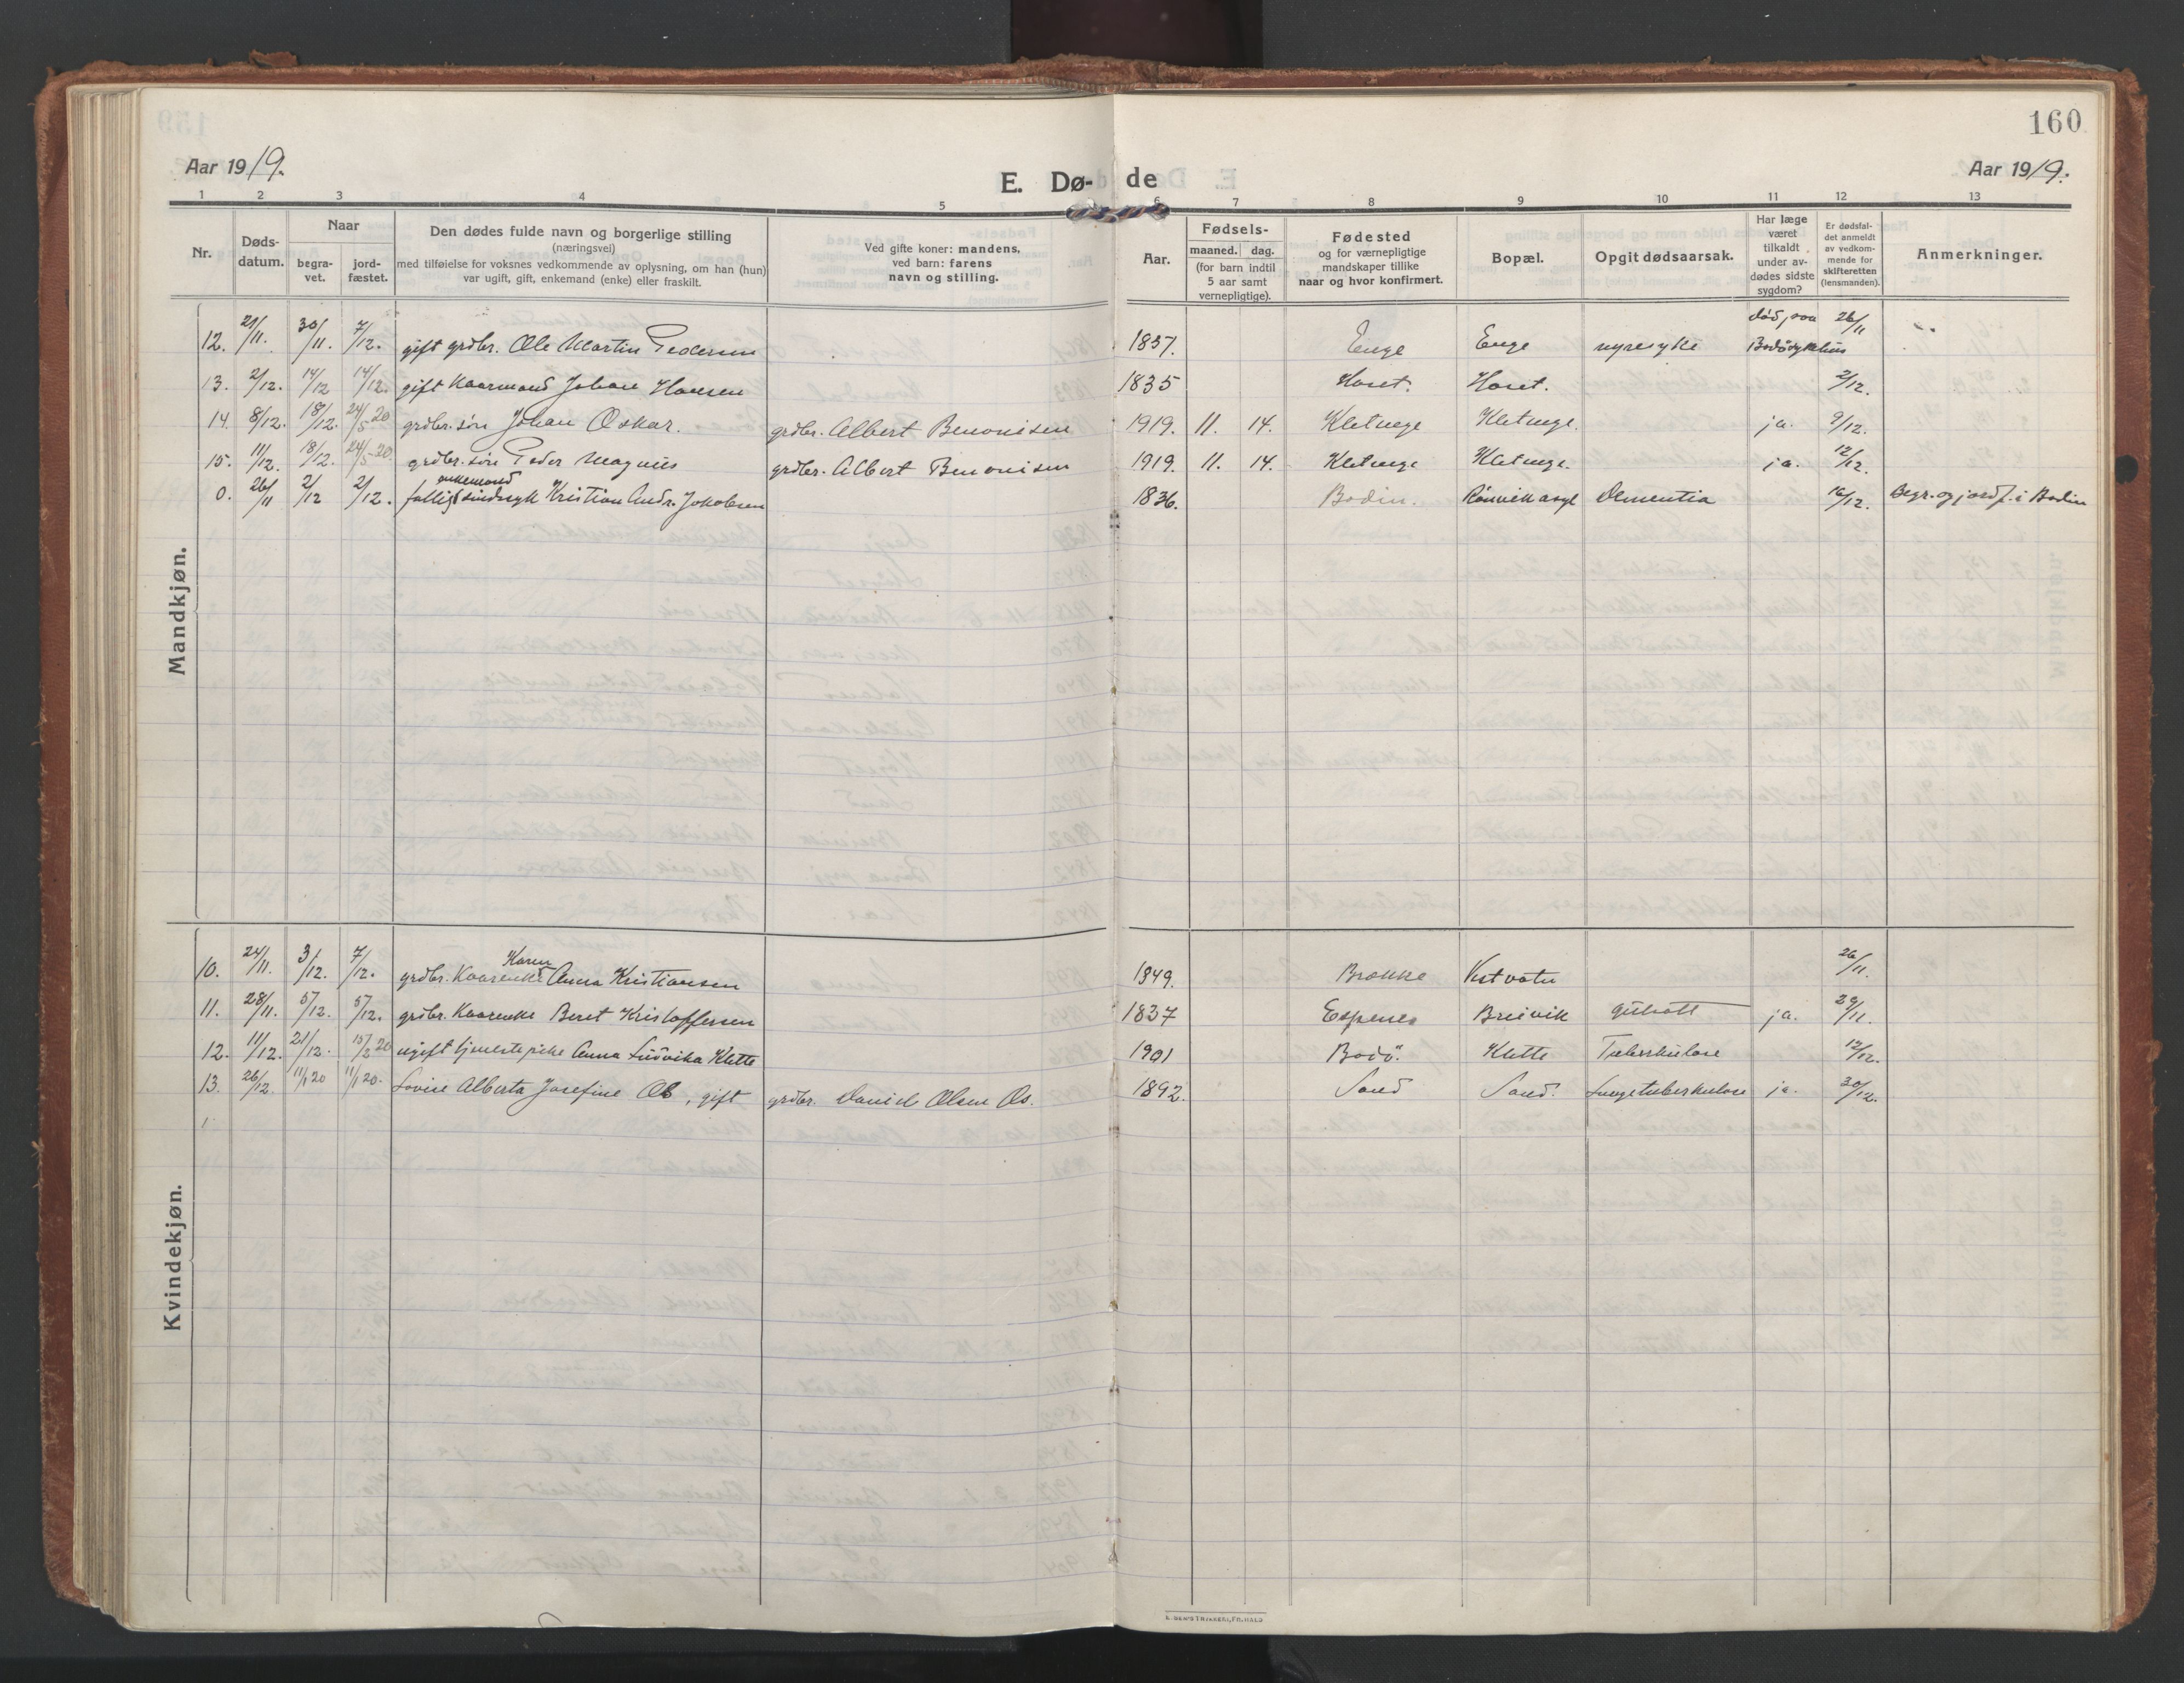 160
Aar 1919.
E. Dø-
de
Aar 1919.
1 2 3 4 5 6 7 8 9 10 11 12 13
Nr.
Døds-
datum.
Naar
begra-
vet.
jord-
fæstet.
Den dødes fulde navn og borgerlige stilling
(næringsvei)
med tilføielse for voksnes vedkommende av oplysning, om han (hun)
var ugift, gift, enkemand (enke) eller fraskilt.
Ved gifte koner: mandens,
ved barn: farens
navn og stilling.
Aar.
Fødsels-
maaned. dag.
(for barn indtil
5 aar samt
vernepligtige).
Fødested
og for værnepligtige
mandskaper tillike
naar og hvor konfirmert.
Bopæl.
Opgit dødsaarsak.
Har læge
været
tilkaldt
under av-
dødes sidste
sygdom?
Er dødsfal-
det anmeldt
av vedkom-
mende for
skifteretten
(lensmanden).
Anmerkninger.
Mandkjøn.
12. 21/11. 30/11. 7/12. gift grdbr. Ole Martin Pedersen 1837. Enge Enge nyresyke død paa Bodø sykehus 26/11
13. 2/12. 14/12 14/12. gift Kaarmand Johan Hansen 1835 Horet. Horet. 2/12.
14. 8/12. 18/12. 24/5 20 grdbr. søn Johan Oskar. grdbr. Albert Benonisen 1919. 11. 14. Kletnege Kletnege. ja. 9/12.
15. 11/12. 18/12. 24/5 20. grdbr. søn Peder Magnus grdbr. Albert Benonisen 1919. 11. 14. Kletnege Kletnege. ja. 12/12.
0. 26/11 2/12 2/12. enkemand fattig sindssyk Kristian Andr. Jakobsen 1836. Bodin. Rønvik asyl Dementia 16/12. Begr. og jordf. i Bodin
Kvindekjøn.
10. 24/11. 3/12. 7/12. grdbr. Kaarenke Karen Anna Kristiansen 1849. Brække Vestvatn 26/11.
11. 28/11. 5/12. 5/12. grdbr. Kaarenke Beret Kristoffersen 1837 Espenes Breivik ja. 29/11.
12. 11/12. 21/12. 15/2 20 ugift tjenestepike Anna Ludvika Klette 1901 Bodø. Klette Tuberkulose 12/12.
13. 26/12. 11/1 20 11/1 20. Lovise Alberta Josefine Os, gift grdbr. Daniel Olsen Os. 1892. Sand Sand. Lungetuberkulose ja. 30/12.